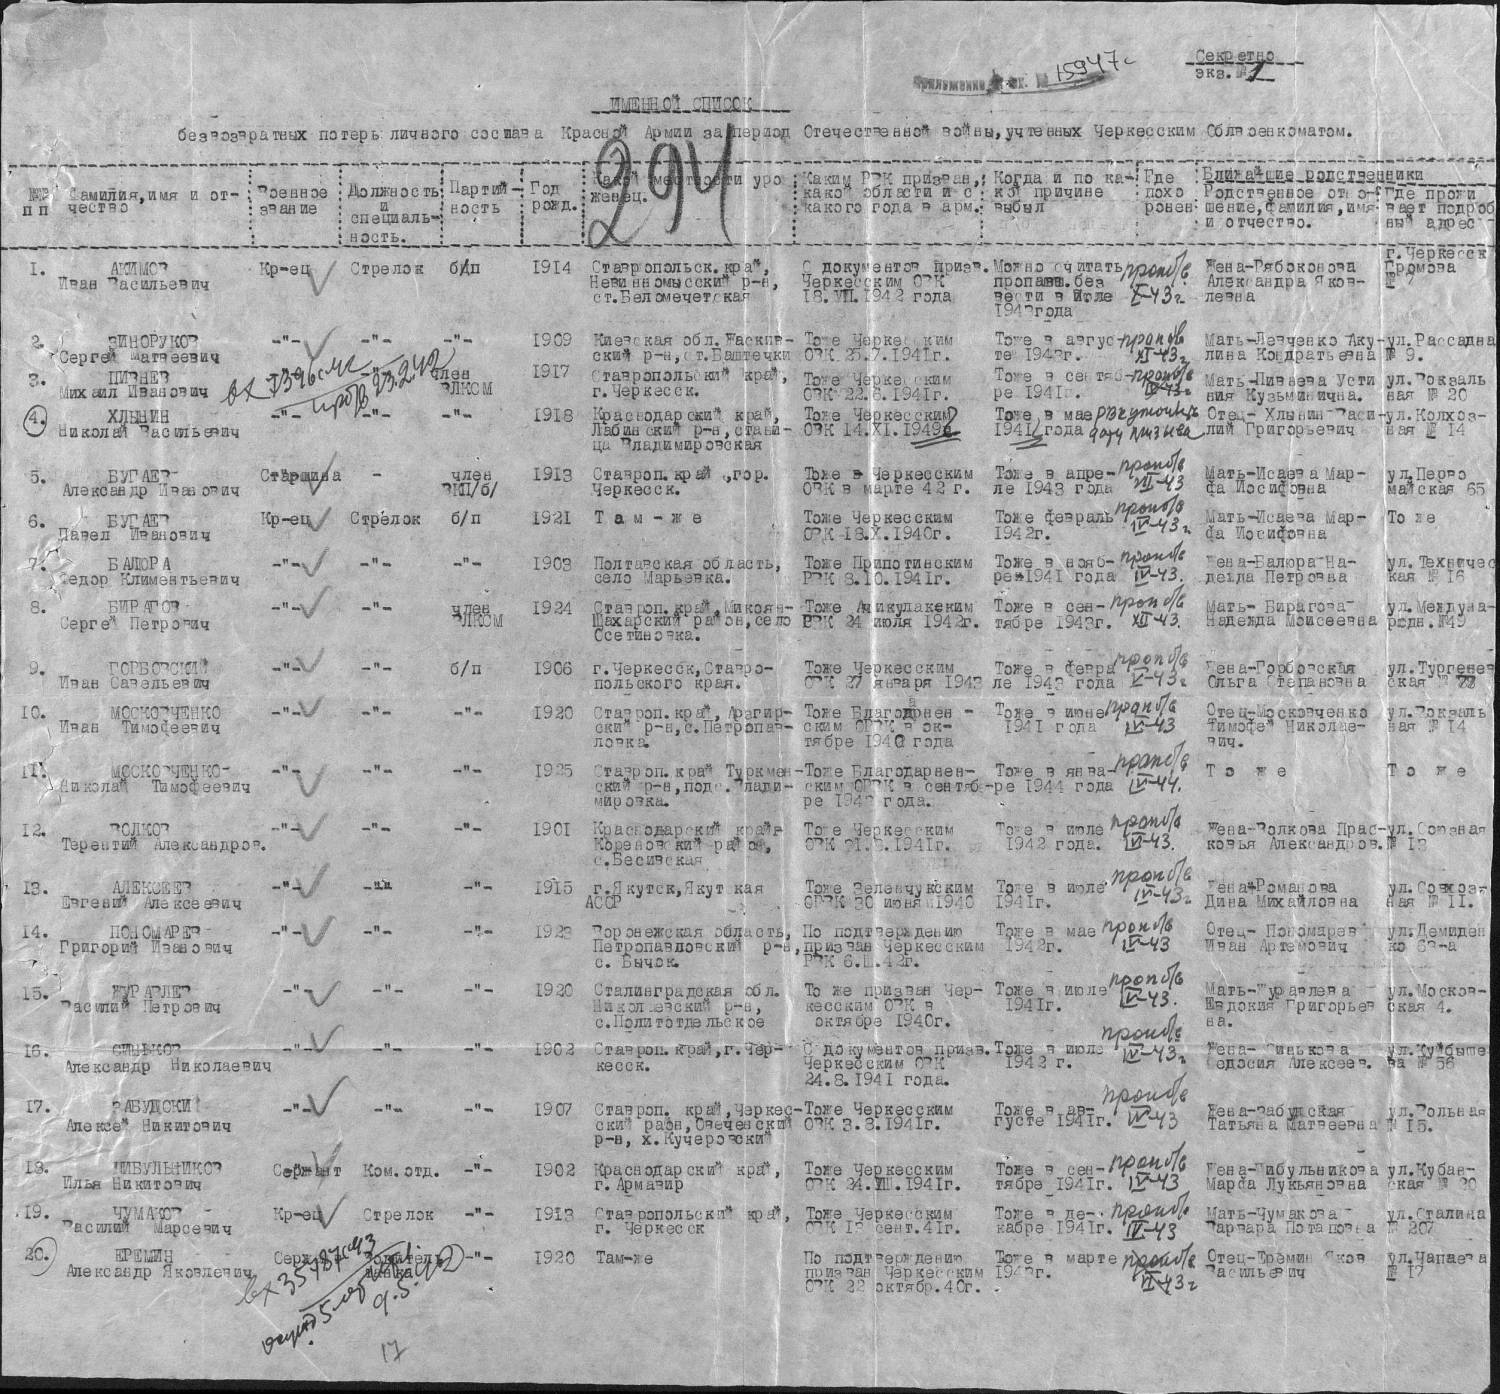 Секретно
экз. № 1
15947с
ИМЕННОЙ СПИСОК
безвозвратных потерь личного состава Красной Армии за период Отечественной войны, учтенных Черкесским Облвоенкоматом.
294
№№ пп | Фамилия, имя и отчество | Военное звание | Должность и специальность. | Партийность | Год рожд. | Какой местности уроженец. | Каким РВК призван, какой области и с какого года в арм. | Когда и по какой причине выбыл | Где похоронен | Ближайшие родственники
Родственное отношение, фамилия, имя и отчество. | Где проживает подробный адрес
1. АКИМОВ Иван Васильевич | Кр-ец | Стрелок | б/п | 1914 | Ставропольск. край, Невинномысский р-н, ст. Беломечетская | С документов призв. Черкесским ОВК 18.VII.1942 года | Можно считать пропавш. без вести в Июле 1943 года | проп б/в X-43г. | Жена-Рябоконова Александра Яковлевна | г. Черкесск Громова №
2. ВИНОРУКОВ Сергей Матвеевич | -"- | -"- | -"- | 1909 | Киевская обл. р-н, ст. Баштечки | Тоже Черкесским ОВК 25.7.1941г. | Тоже в августе 1943г. | проп б/в XI-43г | Мать-Левченко Акулина Кондратьевна | ул. Рассадна № 9.
3. ПИВНЕВ Михаил Иванович | член ВЛКСМ | 1917 | Ставропольский край, г. Черкесск. | Тоже Черкесским ОВК 22.8.1941г. | Тоже в сентябре 1941г. | проп б/в | Мать-Пивнева Устиния Кузьминична. | ул. Вокзальная № 20
4. ХЛЫНИН Николай Васильевич | -"- | -"- | -"- | 1918 | Краснодарский край, Лабинский р-н, станица Владимировская | Тоже Черкесским ОВК 14.XI.1949г | Тоже в мае 1941 года | дату призыва | Отец-Хлынин Василий Григорьевич | ул. Колхозная № 14
5. БУГАЕВ Александр Иванович | Старшина | - | член ВКП/б/ | 1913 | Ставроп. край, гор. Черкесск. | Тоже в Черкесским ОВК в марте 42 г. | Тоже в апреле 1943 года | проп б/в VII-43 | Мать-Исаева Марфа Иосифовна | ул. Первомайская 65
6. БУГАЕВ Павел Иванович | Кр-ец | Стрелок | б/п | 1921 | Там-же | Тоже Черкесским ОВК 18.X.1940г. | Тоже февраль 1942г. | проп б/в IV-43г | Мать-Исаева Марфа Иосифовна | Тоже
7. БАЛЮРА Федор Климентьевич | -"- | -"- | -"- | 1903 | Полтавская область, село Марьевка. | Тоже Припотинским РВК 8.10.1941г. | Тоже в ноябре 1941 года | проп б/в IV-43. | Жена-Балюра Надежда Петровна | ул. Техническая № 16
8. БИРАГОВ Сергей Петрович | -"- | -"- | член ВЛКСМ | 1924 | Ставроп. край, Микоян-Шахарский район, село Осетиновка. | Тоже Ачикулакским РВК 24 июля 1942г. | Тоже в сентябре 1943г. | проп б/в XII-43. | Мать-Бирагова Надежда Моисеевна | ул. Международн. №49
9. ГОРБОВСКИЙ Иван Савельевич | -"- | -"- | б/п | 1906 | г. Черкесск, Ставропольского края. | Тоже Черкесским ОВК 27 января 1943 | Тоже в феврале 1943 года | проп б/в V-43г | Жена-Горбовская Ольга Степановна | ул. Тургеневская №
10. МОСКОВЧЕНКО Иван Тимофеевич | -"- | -"- | -"- | 1920 | Ставроп. край, Арзгирский р-н, с. Петропавловка. | Тоже Благодарненским ОРВК в октябре 1940 года | Тоже в июне 1941 года | проп б/в IV-43 | Отец-Московченко Тимофей Николаевич. | ул. Вокзальная № 14
11. МОСКОВЧЕНКО- Николай Тимофеевич | -"- | -"- | -"- | 1925 | Ставроп. край Туркменский р-н, подс. Владимировка. | Тоже Благодарненским ОРВК в сентябре 1943 года. | Тоже в январе 1944 года | проп б/в IV-44. | Тоже | Тоже
12. ВОЛКОВ Терентий Александров. | -"- | -"- | -"- | 1901 | Краснодарский край Кореновский район, с. Бесивская | Тоже Черкесским ОВК 31.8.1941г. | Тоже в июле 1942 года. | проп б/в IV-43. | Жена-Волкова Прасковья Александров. | ул. Союзная № 13
13. АЛЕКСЕЕВ Евгений Алексеевич | -"- | -"- | -"- | 1915 | г. Якутск, Якутская АССР | Тоже Зеленчукским ОРВК 30 июня 1940 | Тоже в июле 1941г. | проп б/в IV-43г | Жена-Романова Дина Михайловна | ул. Совхозная № 11.
14. ПОНОМАРЕВ Григорий Иванович | -"- | -"- | -"- | 1923 | Воронежская область, Петропавловский р-н, с. Бычок. | По подтверждению призван Черкесским РВК 6.III.42г. | Тоже в мае 1942г. | проп б/в IV-43 | Отец-Пономарев Иван Артемович | ул. Демиденко 63-а
15. ЖУРАВЛЕВ Василий Петрович | -"- | -"- | -"- | 1920 | Сталинградская обл. Николаевский р-н, с. Политотдельское | То же призван Черкесским ОВК в октябре 1940г. | Тоже в июле 1941г. | проп б/в IV-43. | Мать-Журавлева Евдокия Григорьевна. | ул. Московская 4.
16. СИНЬКОВ Александр Николаевич | -"- | -"- | -"- | 1902 | Ставроп. край, г. Черкесск. | С документов призв. Черкесским ОВК 24.8.1941 года. | Тоже в июле 1942 г. | проп б/в IV-43г | Жена-Синькова Федосия Алексеев. | ул. Куйбышева № 56
17. ЗАБУДСКИЙ Алексей Никитович | -"- | -"- | -"- | 1907 | Ставроп. край, Черкесский район, р-н, х. Кучеровский | Тоже Черкесским ОВК 3.8.1941г. | Тоже в августе 1941г. | проп б/в IV-43 | Жена-Забудская Татьяна Матвеевна | ул. Вольная № 15.
18. ЦИБУЛЬНИКОВ Илья Никитович | Сержант | Ком. отд. | -"- | 1902 | Краснодарский край, г. Армавир | Тоже Черкесским ОВК 24.VIII.1941г. | Тоже в сентябре 1941г. | проп б/в IV-43 | Жена-Цибульникова Марфа Лукьяновна | ул. Кубанская № 20
19. ЧУМАКОВ Василий Марсевич | Кр-ец | Стрелок | -"- | 1913 | Ставропольский край, г. Черкесск | Тоже Черкесским ОВК 13 сент. 41г. | Тоже в декабре 1941г. | проп б/в IV-43 | Мать-Чумакова Варвара Потаповна | ул. Сталина № 207
20. ЕРЕМИН Александр Яковлевич | Сержант | Водитель танка | -"- | 1920 | Там-же | По подтверждению призван Черкесским ОВК 22 октябр. 40г. | Тоже в марте 1943г. | проп б/в VI-43г | Отец-Еремин Яков Васильевич | ул. Чапаева № 17
вх 35487с-43
9.5.42
17